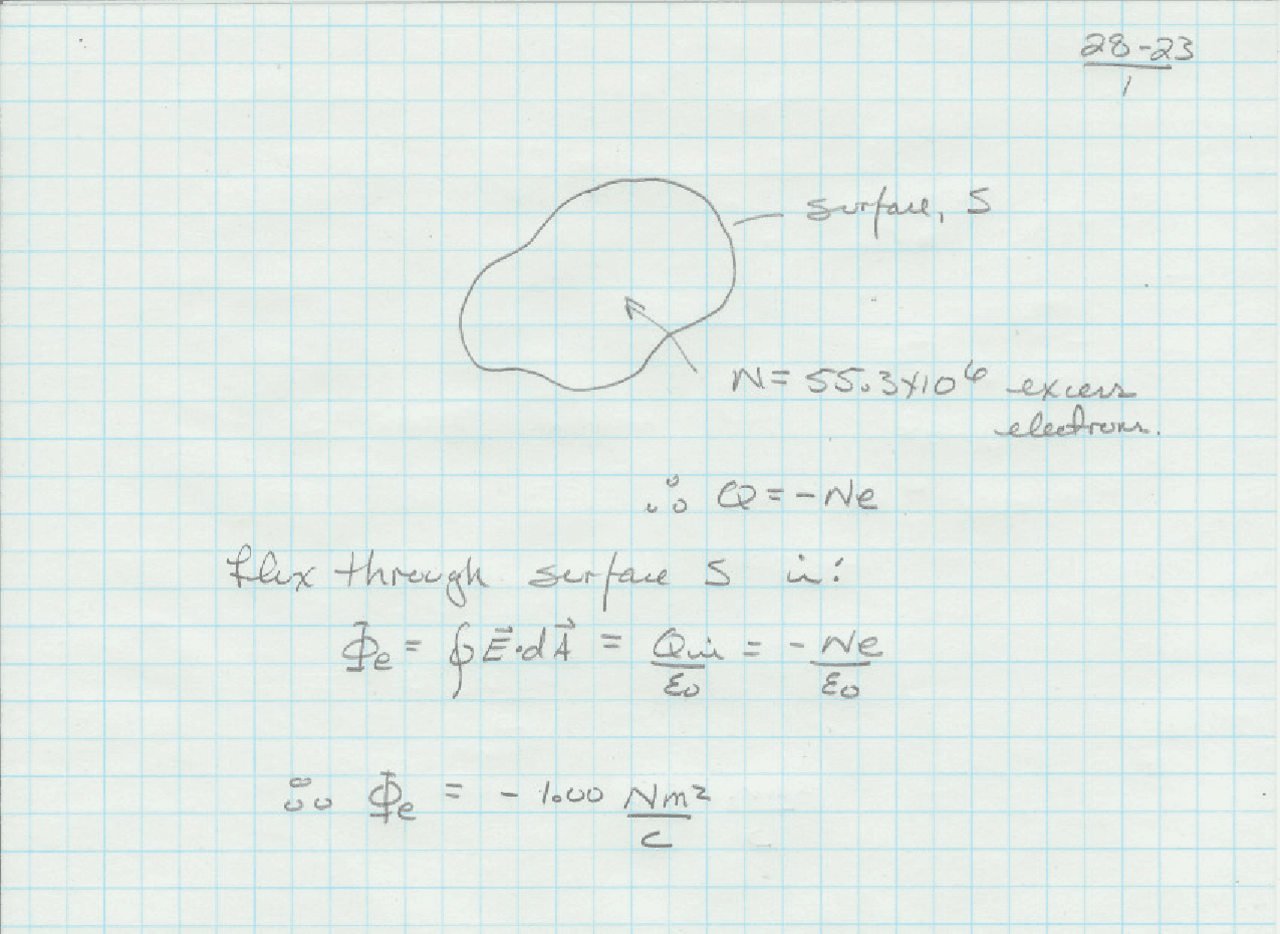 28-23
1
surface, S
N = 55.3x10⁶ excess
electrons.
∴ Q = -Ne
flux through surface S is:
Φe = ∮ E⃗·dA⃗ = Qin/ε₀ = -Ne/ε₀
∴ Φe = -1.00 Nm²/C